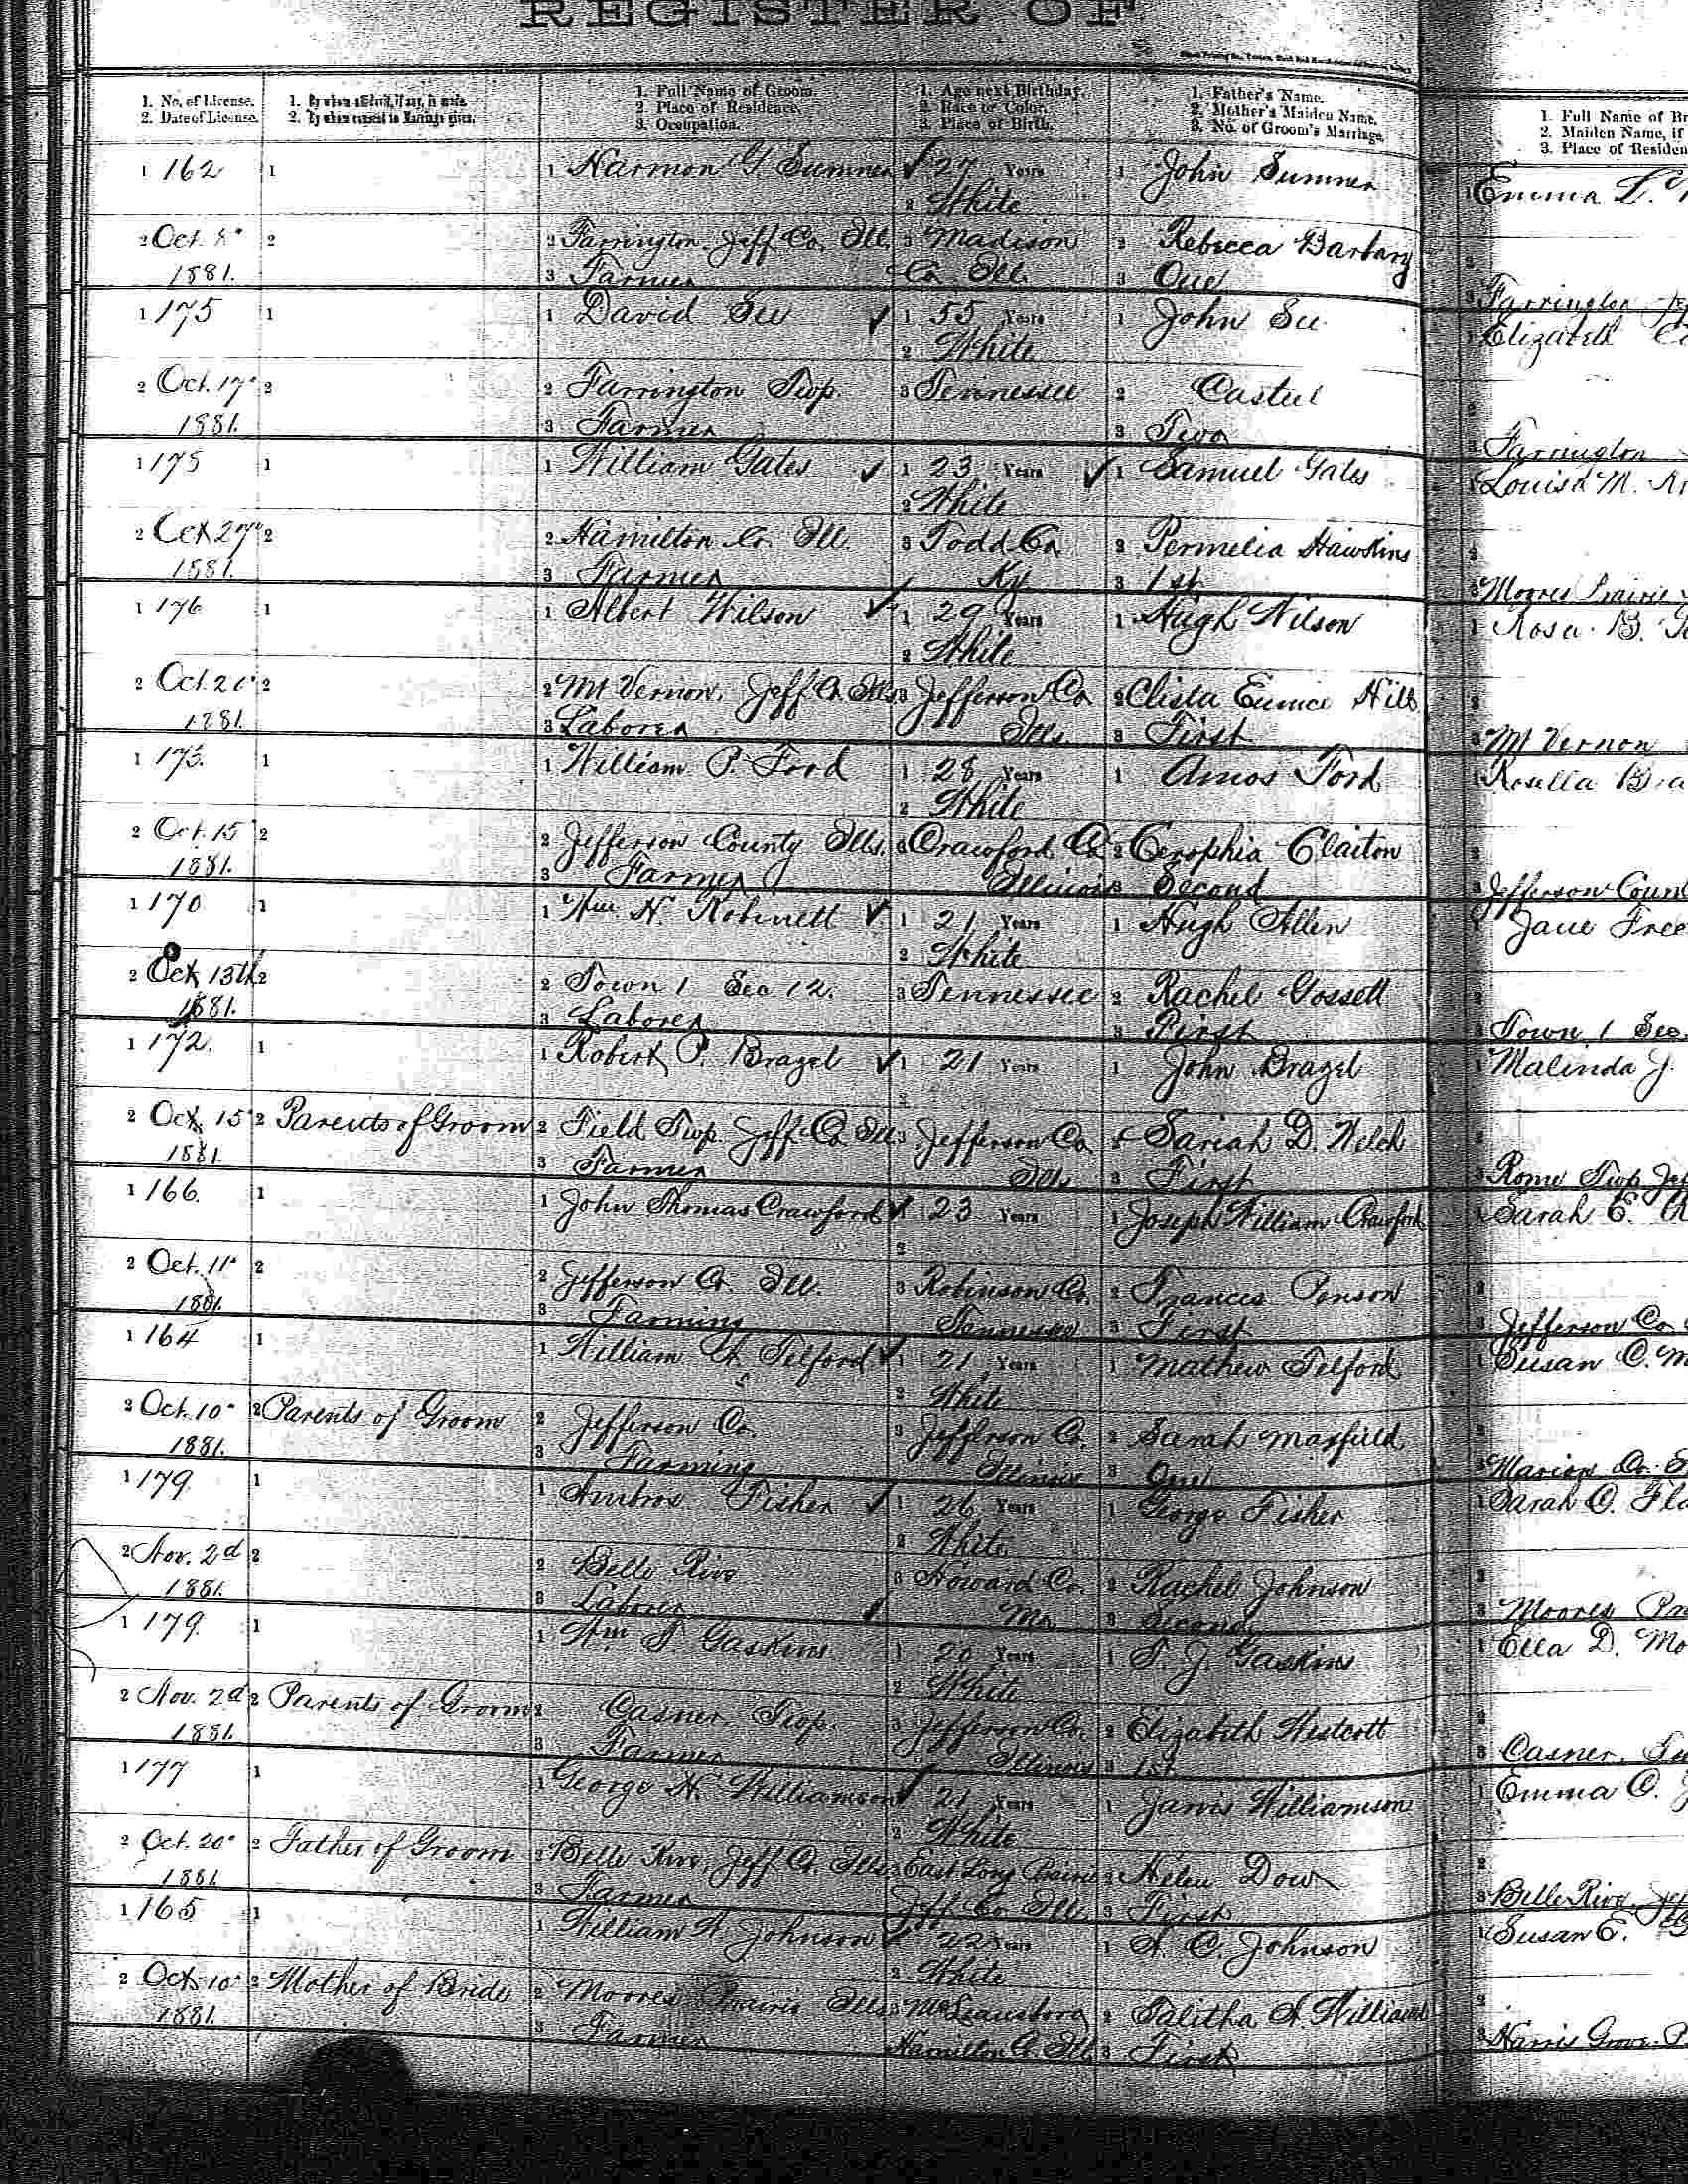 REGISTER OF
1. No. of License. 1. By whom affidavit, if any, is made. 1. Full Name of Groom. 1. Age next Birthday. 1. Father's Name. 1. Full Name of Br
2. Date of License. 2. By whom consent to Marriage given. 2. Place of Residence. 2. Race or Color. 2. Mother's Maiden Name. 2. Maiden Name, if
3. Occupation. 3. Place of Birth. 3. No. of Groom's Marriage. 3. Place of Residen
1 162 1 1 Harmon G. Sumner 1 27 Years 1 John Sumner 1 Emma L.
2 White
2 Oct. 2 2 Farrington Jeff Co. Ill. 3 Madison 2 Rebecca Barbary 2
1881. 3 Farmer Co Ill. 3 One 3 Farrington
1 175 1 1 David See 1 55 Years 1 John See 1 Elizabeth
2 White
2 Oct. 17" 2 2 Farrington Twp. 3 Tennessee 2 Casteel 2
1881. 3 Farmer 3 Two 3 Farrington
1 175 1 1 William Gates 1 23 Years 1 Samuel Gates 1 Louisa M.
2 White
2 Oct 27" 2 2 Hamilton Co. Ill. 3 Todd Co 2 Permelia Hawkins 2
1881. 3 Farmer Ky. 3 1st 3 Moores Prairie
1 176 1 1 Albert Wilson 1 29 Years 1 Hugh Wilson 1 Rosa B.
2 White
2 Oct. 2 2 Mt Vernon, Jeff Co. Ills 3 Jefferson Co 2 Clista Eunice Hill 2
1881. 3 Laborer Ills 3 First 3 Mt Vernon
1 173. 1 1 William P. Ford 1 28 Years 1 Amos Ford 1 Rosella
2 White
2 Oct. 15 2 2 Jefferson County Ills. 3 Crawford Co 2 Cerophia Claiton 2
1881. 3 Farmer Illinois 3 Second 3 Jefferson Coun
1 170 1 1 Wm H. Robinett 1 21 Years 1 Hugh Allen 1 Jane Free
2 White
2 Oct 13th 2 2 Town 1 Sec 12. 3 Tennessee 2 Rachel Gossett 2
1881. 3 Laborer 3 First 3 Town 1 Sec.
1 172. 1 1 Robert P. Brazel 1 21 Years 1 John Brazel 1 Malinda J.
2
2 Oct. 15" 2 Parents of Groom 2 Field Twp. Jeff Co Ill 3 Jefferson Co 2 Sariah D. Welch 2
1881. 3 Farmer Ills 3 First 3 Rome Twp Jef
1 166. 1 1 John Thomas Crawford 1 23 Years 1 Joseph William Crawford 1 Sarah E.
2
2 Oct. 11" 2 2 Jefferson Co. Ill. 3 Robinson Co. 2 Frances Penson 2
1881. 3 Farming Tennessee 3 First 3 Jefferson Co
1 164 1 1 William Telford 1 21 Years 1 Mathew Telford 1 Susan C. M
2 White
2 Oct. 10" 2 Parents of Groom 2 Jefferson Co. 3 Jefferson Co. 2 Sarah Maxfield 2
1881. 3 Farming Illinois 3 One 3 Marion Co.
1 179 1 1 Ambros Fisher 1 26 Years 1 George Fisher 1 Sarah C. Fl
2 White
2 Nov. 2d 2 2 Belle Rive 3 Howard Co. 2 Rachel Johnson 2
1881. 3 Laborer Mo. 3 Second 3 Moores
1 179. 1 1 Wm J. Gaskins 1 20 Years 1 T. J. Gaskins 1 Ella D. Mo
2 White
2 Nov. 2d 2 Parents of Groom 2 Casner Twp. 3 Jefferson Co. 2 Elizabeth Westcott 2
1881. 3 Farmer Illinois 3 1st 3 Casner
1 177 1 1 George H. Williamson 1 21 Years 1 Jarvis Williamson 1 Emma C.
2 White
2 Oct. 20" 2 Father of Groom 2 Belle Rive, Jeff Co. Ills 3 East Long Prairie 2 Helen Dow 2
1881. 3 Farmer Jeff Co Ill. 3 First 3 Belle Rive, Jeff
1 165 1 1 William H. Johnson 1 22 Years 1 A. C. Johnson 1 Susan E.
2 White
2 Oct. 10" 2 Mother of Bride 2 Moores Prairie Ills 3 McLeansboro 2 Talitha A. Williams 2
1881. 3 Farmer Hamilton Co. Ill. 3 First 3 Harris Grove